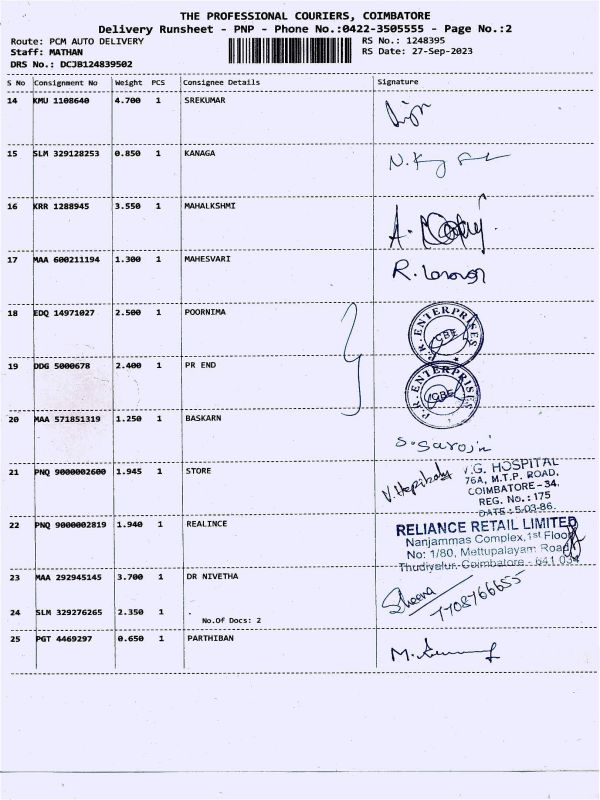 THE PROFESSIONAL COURIERS, COIMBATORE
Delivery Runsheet - PNP - Phone No.:0422-3505555 - Page No.:2
Route: PCM AUTO DELIVERY RS No.: 1248395
Staff: MATHAN RS Date: 27-Sep-2023
DRS No.: DCJB124839502
S No Consignment No Weight PCS Consignee Details Signature
14 KMU 1108640 4.700 1 SREKUMAR
15 SLM 329128253 0.850 1 KANAGA
16 KRR 1288945 3.550 1 MAHALKSHMI
17 MAA 600211194 1.300 1 MAHESVARI
18 EDQ 14971027 2.500 1 POORNIMA
P.R. ENTERPRISES CBE
19 DDG 5000678 2.400 1 PR END
P.R. ENTERPRISES CBE
20 MAA 571851319 1.250 1 BASKARN
S. Saroji
21 PNQ 9000002600 1.945 1 STORE
V.G. HOSPITAL
76A, M.T.P. ROAD,
COIMBATORE-34.
REG. No.: 175
DATE: 5-03-86.
22 PNQ 9000002819 1.940 1 REALINCE
RELIANCE RETAIL LIMITED
Nanjammas Complex, 1st Floor
No: 1/80, Mettupalayam Road
Thudiyalur, Coimbatore - 641 034
23 MAA 292945145 3.700 1 DR NIVETHA
Sheena
7708766655
24 SLM 329276265 2.350 1 .
No.Of Docs: 2
25 PGT 4469297 0.650 1 PARTHIBAN